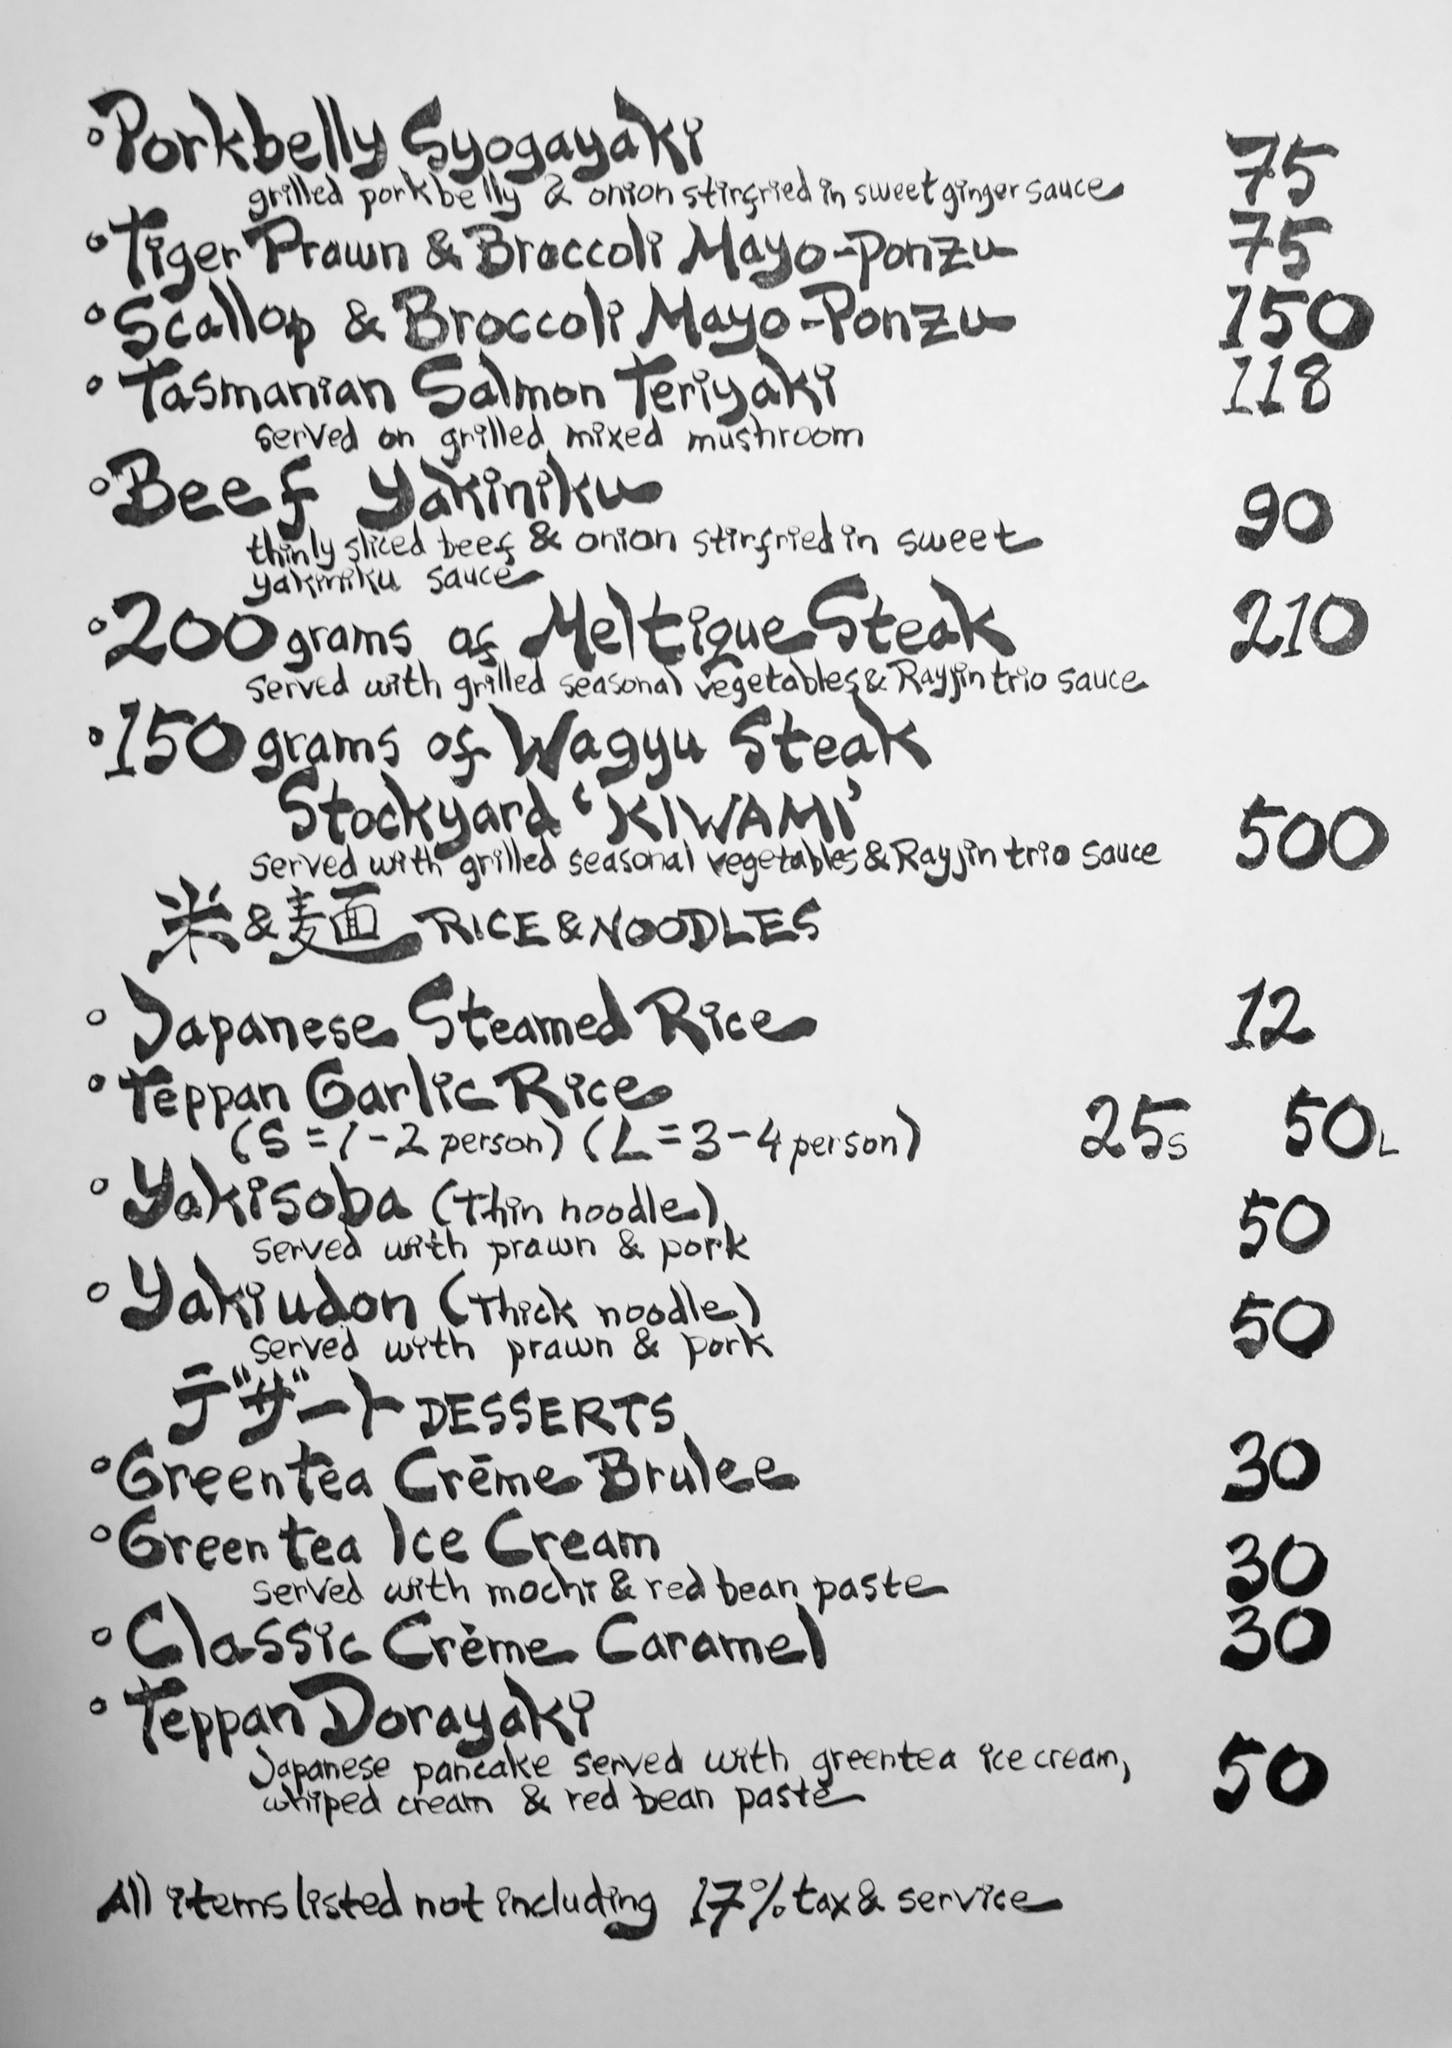 Porkbelly Syogayaki 75
grilled porkbelly & onion stirfried in sweet ginger sauce
Tiger Prawn & Broccoli Mayo-ponzu 75
Scallop & Broccoli Mayo-Ponzu 150
Tasmanian Salmon Teriyaki 118
served on grilled mixed mushroom
Beef Yakiniku 90
thinly sliced beef & onion stirfried in sweet
yakiniku sauce
200 grams of Meltique Steak 210
served with grilled seasonal vegetables & Rayjin trio sauce
150 grams of Wagyu Steak
Stockyard 'KIWAMI' 500
served with grilled seasonal vegetables & Rayjin trio sauce
米&麺 RICE & NOODLES
Japanese Steamed Rice 12
Teppan Garlic Rice
(S=1-2 person) (L=3-4 person) 25S 50L
Yakisoba (Thin noodle) 50
served with prawn & pork
Yakiudon (Thick noodle) 50
served with prawn & pork
デザート DESSERTS
Greentea Crēme Brulee 30
Green tea Ice Cream 30
served with mochi & red bean paste
Classic Crème Caramel 30
Teppan Dorayaki 50
Japanese pancake served with greentea ice cream,
whiped cream & red bean paste
All items listed not including 17% tax & service